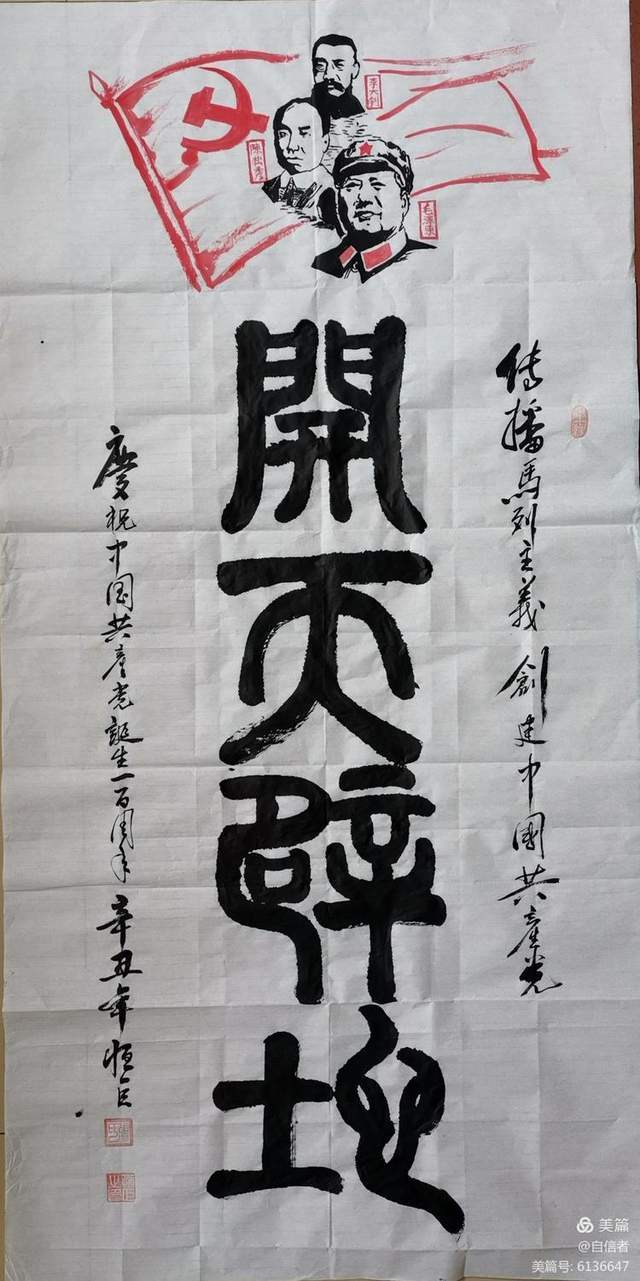 李大钊
陈独秀
毛泽東
傳播馬列主義 創建中國共產党
開天辟地
慶祝中国共產党誕生一百周年 辛丑年 恒巨
美篇
@自信者
美篇号: 6136647